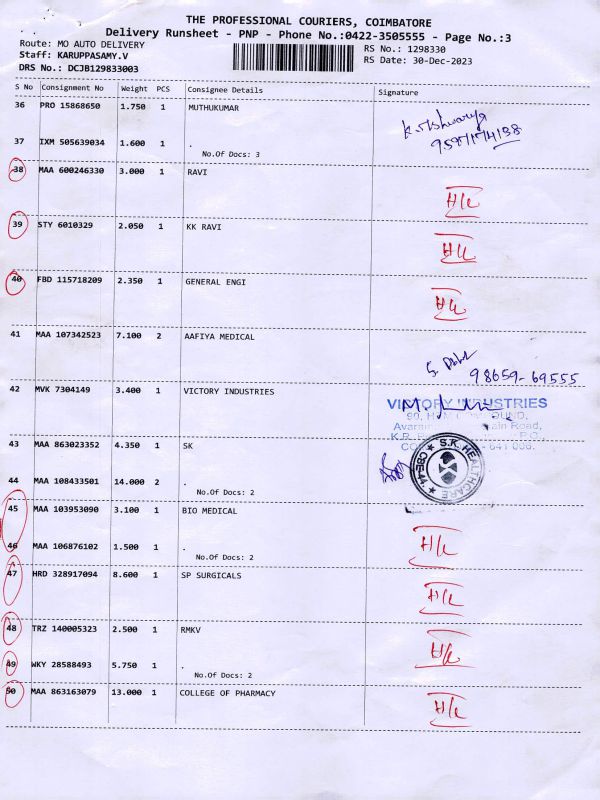 THE PROFESSIONAL COURIERS, COIMBATORE
Delivery Runsheet - PNP - Phone No.:0422-3505555 - Page No.:3
Route: MO AUTO DELIVERY RS No.: 1298330
Staff: KARUPPASAMY.V RS Date: 30-Dec-2023
DRS No.: DCJB129833003
S No Consignment No Weight PCS Consignee Details Signature
36 PRO 15868650 1.750 1 MUTHUKUMAR
37 IXM 505639034 1.600 1 .
No.Of Docs: 3
38 MAA 600246330 3.000 1 RAVI
H/c
39 STY 6010329 2.050 1 KK RAVI
H/c
40 FBD 115718209 2.350 1 GENERAL ENGI
H/c
41 MAA 107342523 7.100 2 AAFIYA MEDICAL
98659-69555
42 MVK 7304149 3.400 1 VICTORY INDUSTRIES
VICTORY INDUSTRIES
43 MAA 863023352 4.350 1 SK
S.K. HEALTHCARE
CBE-44
44 MAA 108433501 14.000 2 .
No.Of Docs: 2
45 MAA 103953090 3.100 1 BIO MEDICAL
46 MAA 106876102 1.500 1 .
H/c
No.Of Docs: 2
47 HRD 328917094 8.600 1 SP SURGICALS
H/c
48 TRZ 140005323 2.500 1 RMKV
H/c
49 WKY 28588493 5.750 1 .
No.Of Docs: 2
50 MAA 863163079 13.000 1 COLLEGE OF PHARMACY
H/c